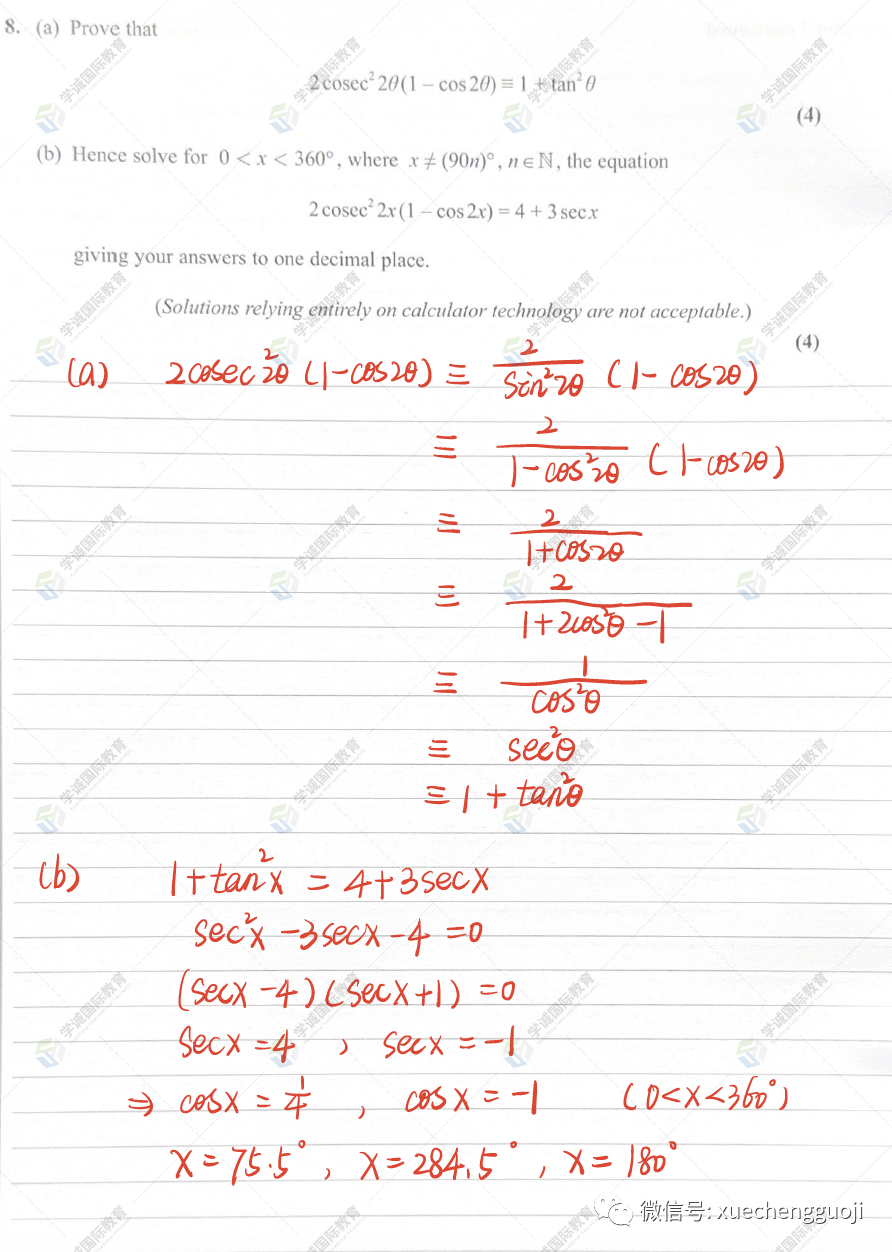 8. (a) Prove that
2cosec²2θ(1 − cos2θ) ≡ 1 + tan²θ
(4)
(b) Hence solve for 0 < x < 360°, where x ≠ (90n)°, n ∈ ℕ, the equation
2cosec²2x(1 − cos2x) = 4 + 3secx
giving your answers to one decimal place.
(Solutions relying entirely on calculator technology are not acceptable.)
(4)
(a) 2cosec²2θ (1−cos2θ) ≡ 2/sin²2θ (1− cos2θ)
≡ 2/(1−cos²2θ) (1−cos2θ)
≡ 2/(1+cos2θ)
≡ 2/(1+2cos²θ −1)
≡ 1/cos²θ
≡ sec²θ
≡ 1 + tan²θ
(b) 1+tan²x = 4+3secx
sec²x −3secx −4 =0
(secx −4)(secx+1) =0
secx =4 , secx = −1
⇒ cosx = 1/4 , cosx = −1 (0<x<360°)
x = 75.5° , x = 284.5° , x = 180°
微信号: xuechengguoji
学诚国际教育